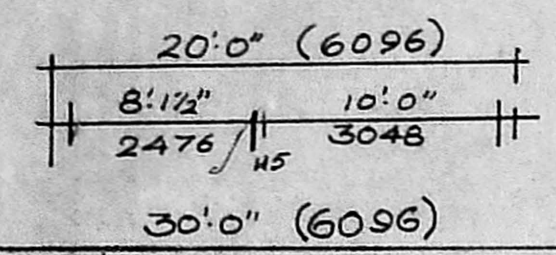 20'-0" (6096)
8'-1½" 10'-0"
2476 115 3048
30'-0" (6096)